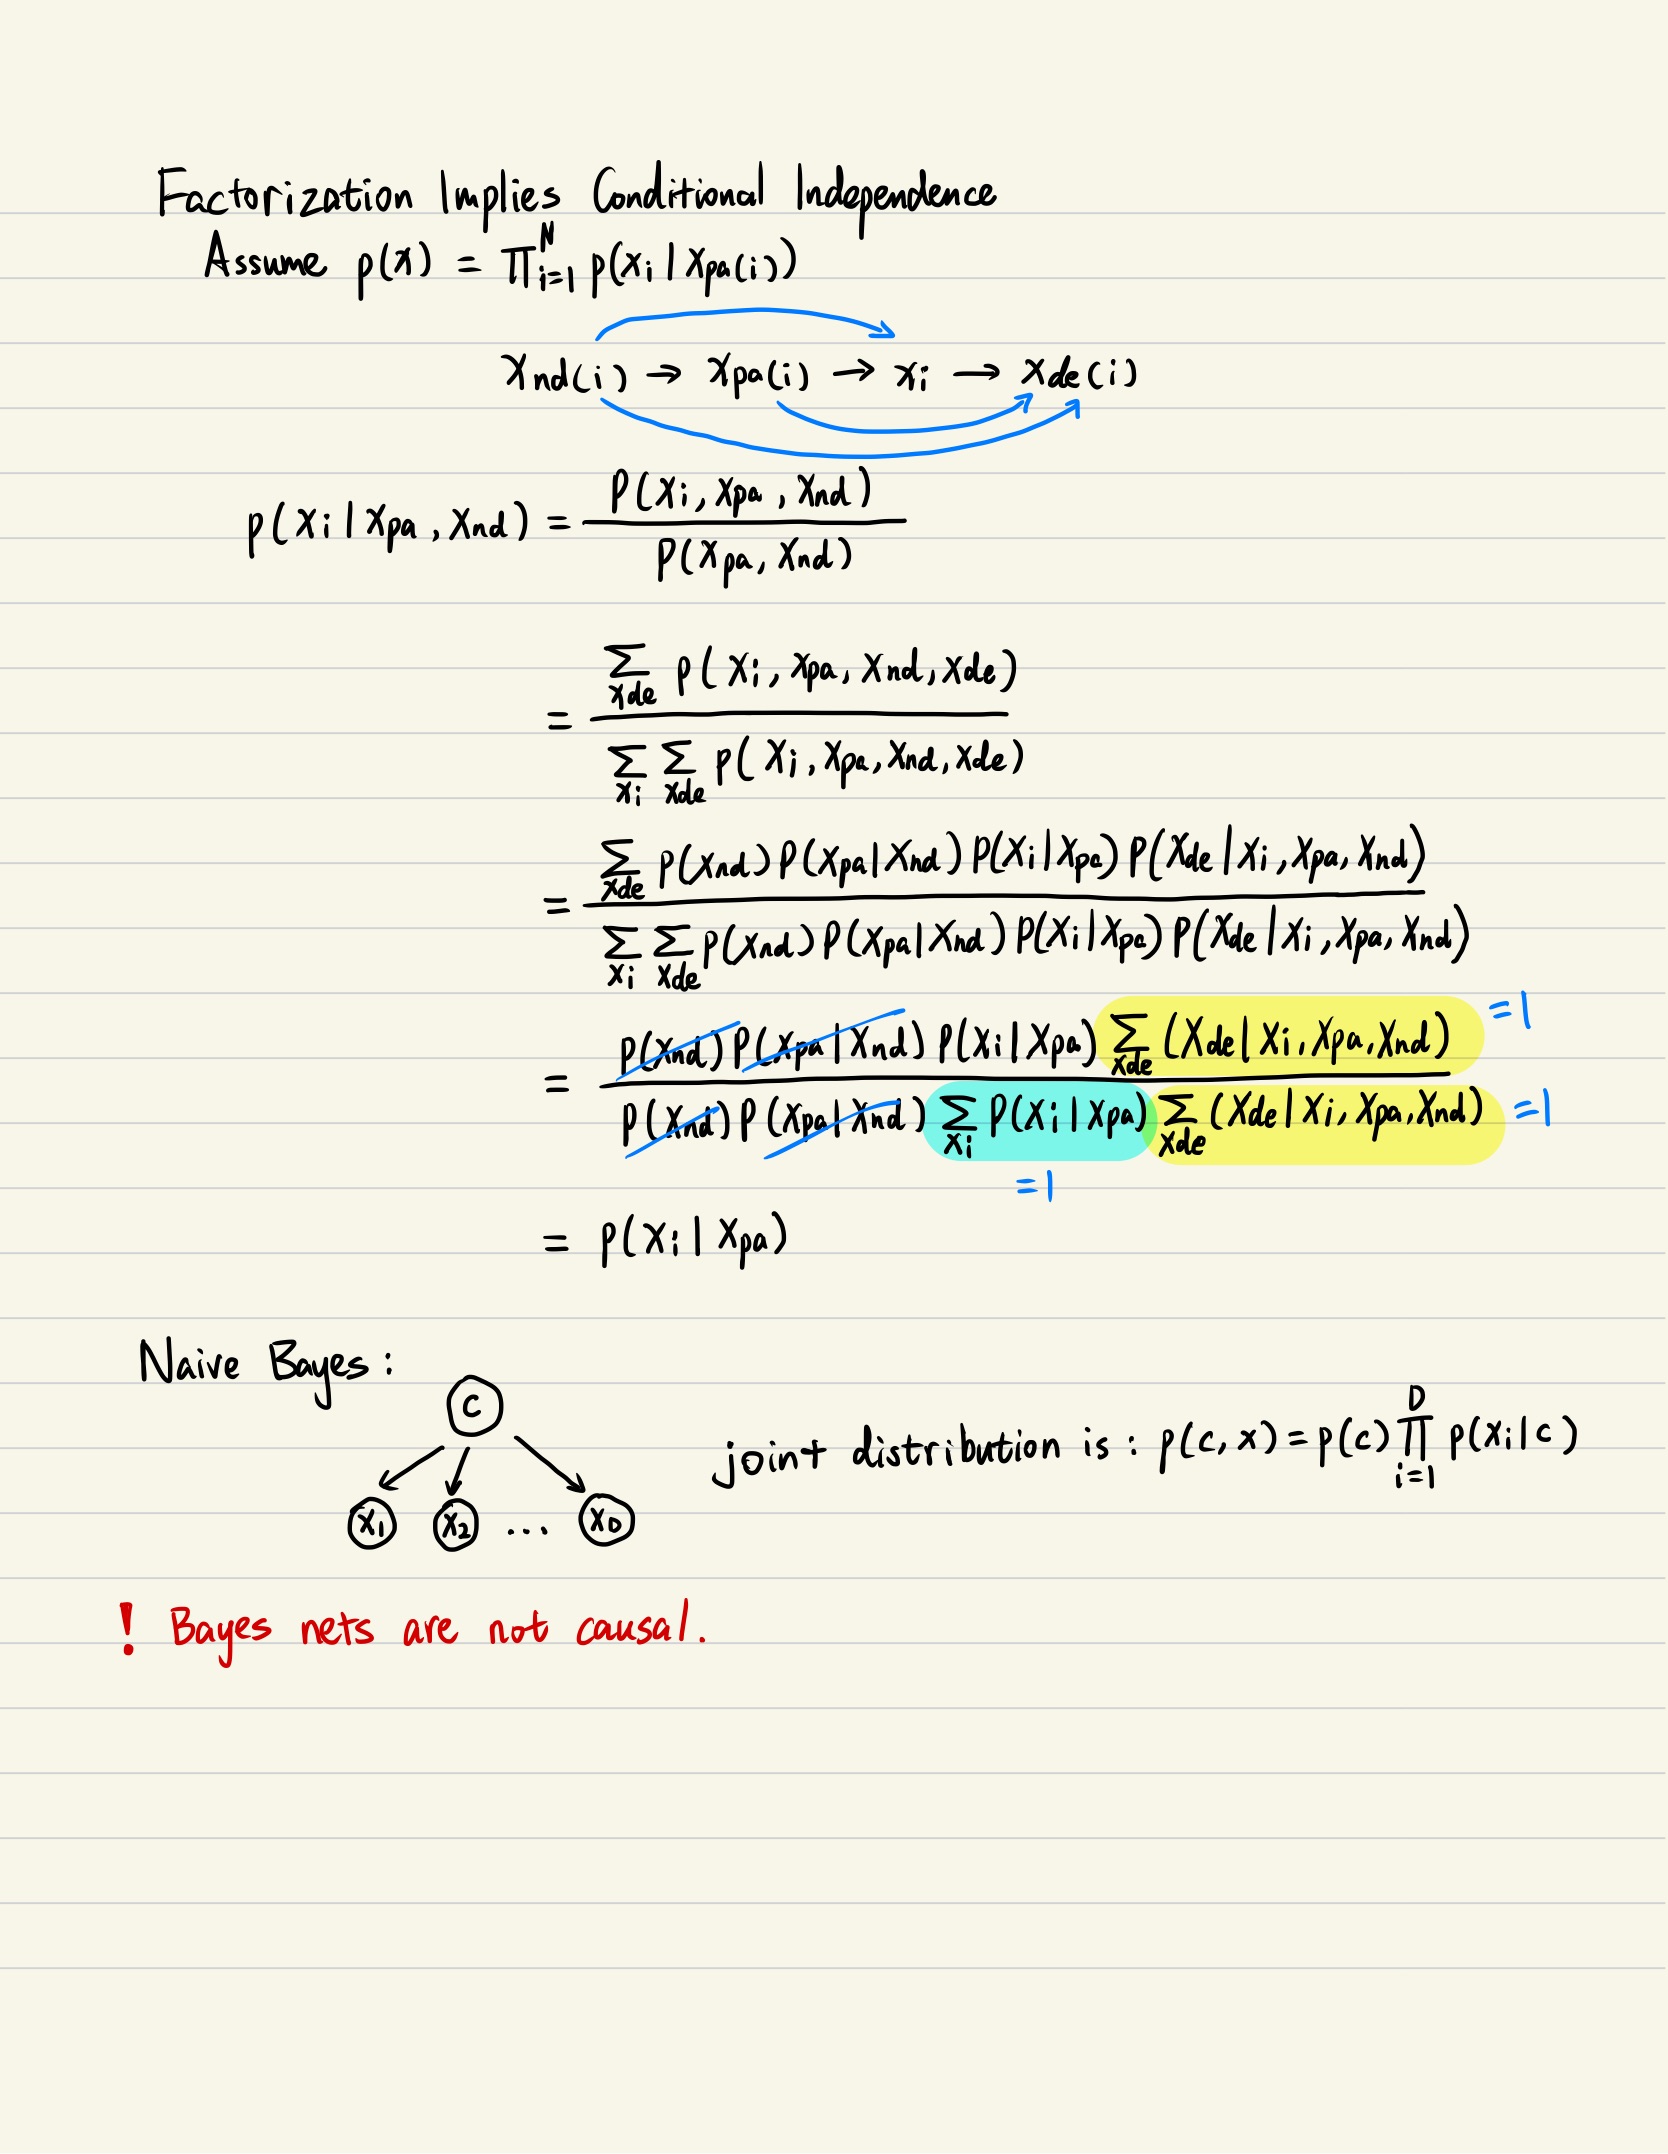 Factorization Implies Conditional Independence
Assume p(x) = ∏_{i=1}^{N} p(x_i | x_{pa(i)})
x_{nd(i)} → x_{pa(i)} → x_i → x_{de(i)}
p(x_i | x_{pa}, x_{nd}) = \frac{P(x_i, x_{pa}, x_{nd})}{P(x_{pa}, x_{nd})}
= \frac{∑_{x_{de}} p(x_i, x_{pa}, x_{nd}, x_{de})}{∑_{x_i} ∑_{x_{de}} p(x_i, x_{pa}, x_{nd}, x_{de})}
= \frac{∑_{x_{de}} p(x_{nd}) P(x_{pa} | x_{nd}) P(x_i | x_{pa}) P(x_{de} | x_i, x_{pa}, x_{nd})}{∑_{x_i} ∑_{x_{de}} p(x_{nd}) P(x_{pa} | x_{nd}) P(x_i | x_{pa}) P(x_{de} | x_i, x_{pa}, x_{nd})}
= \frac{p(x_{nd}) P(x_{pa} | x_{nd}) P(x_i | x_{pa}) ∑_{x_{de}} (x_{de} | x_i, x_{pa}, x_{nd})}{P(x_{nd}) P(x_{pa} | x_{nd}) ∑_{x_i} P(x_i | x_{pa}) ∑_{x_{de}} (x_{de} | x_i, x_{pa}, x_{nd})}
=1
=1
=1
= p(x_i | x_{pa})
Naive Bayes :
C
x_1 x_2 ... x_D
joint distribution is : p(c, x) = p(c) ∏_{i=1}^{D} p(x_i | c)
! Bayes nets are not causal.